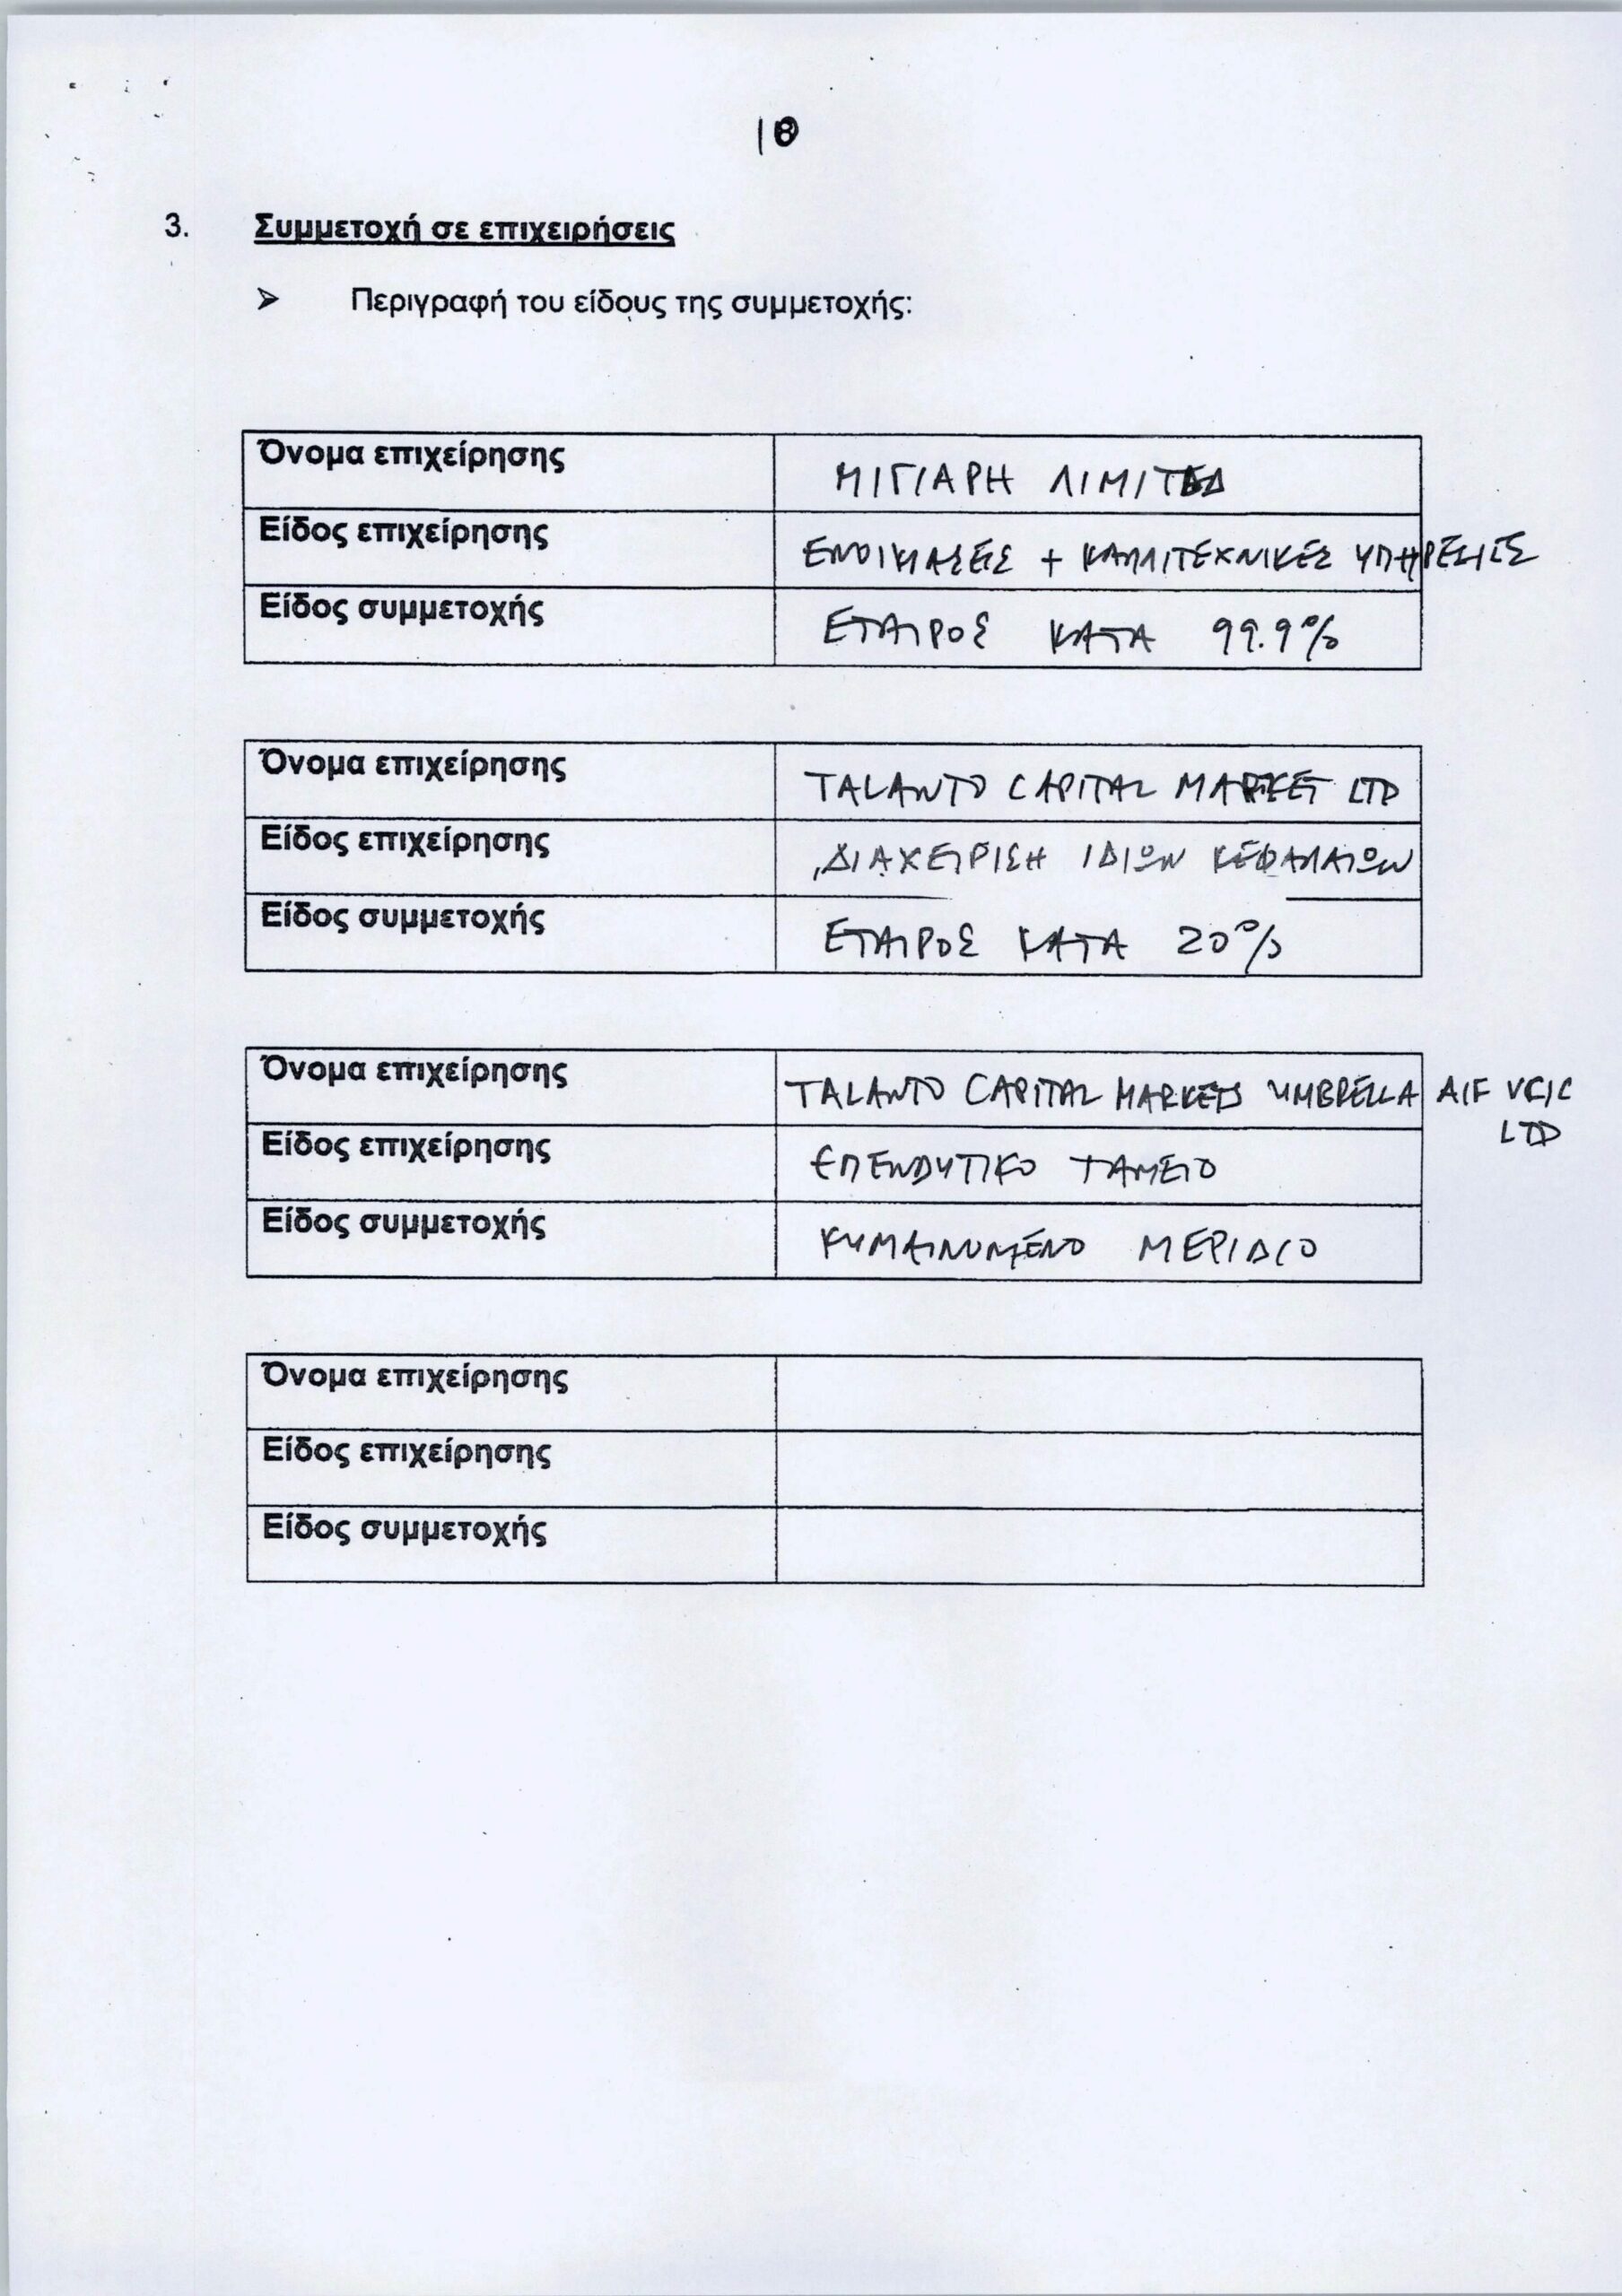 18
3. Συμμετοχή σε επιχειρήσεις
➢ Περιγραφή του είδους της συμμετοχής:
Όνομα επιχείρησης ΜΙΓΙΑΡΗ ΛΙΜΙΤΕΔ
Είδος επιχείρησης ΕΝΟΙΚΙΑΣΕΙΣ + ΚΑΛΛΙΤΕΧΝΙΚΕΣ ΥΠΗΡΕΣΙΕΣ
Είδος συμμετοχής ΕΤΑΙΡΟΣ ΚΑΤΑ 99.9%
Όνομα επιχείρησης TALANTO CAPITAL MARKET LTD
Είδος επιχείρησης ΔΙΑΧΕΙΡΙΣΗ ΙΔΙΩΝ ΚΕΦΑΛΑΙΩΝ
Είδος συμμετοχής ΕΤΑΙΡΟΣ ΚΑΤΑ 20%
Όνομα επιχείρησης TALANTO CAPITAL MARKETS UMBRELLA AIF VCIC
LTD
Είδος επιχείρησης ΕΠΕΝΔΥΤΙΚΟ ΤΑΜΕΙΟ
Είδος συμμετοχής ΚΥΜΑΙΝΟΜΕΝΟ ΜΕΡΙΔΙΟ
Όνομα επιχείρησης
Είδος επιχείρησης
Είδος συμμετοχής